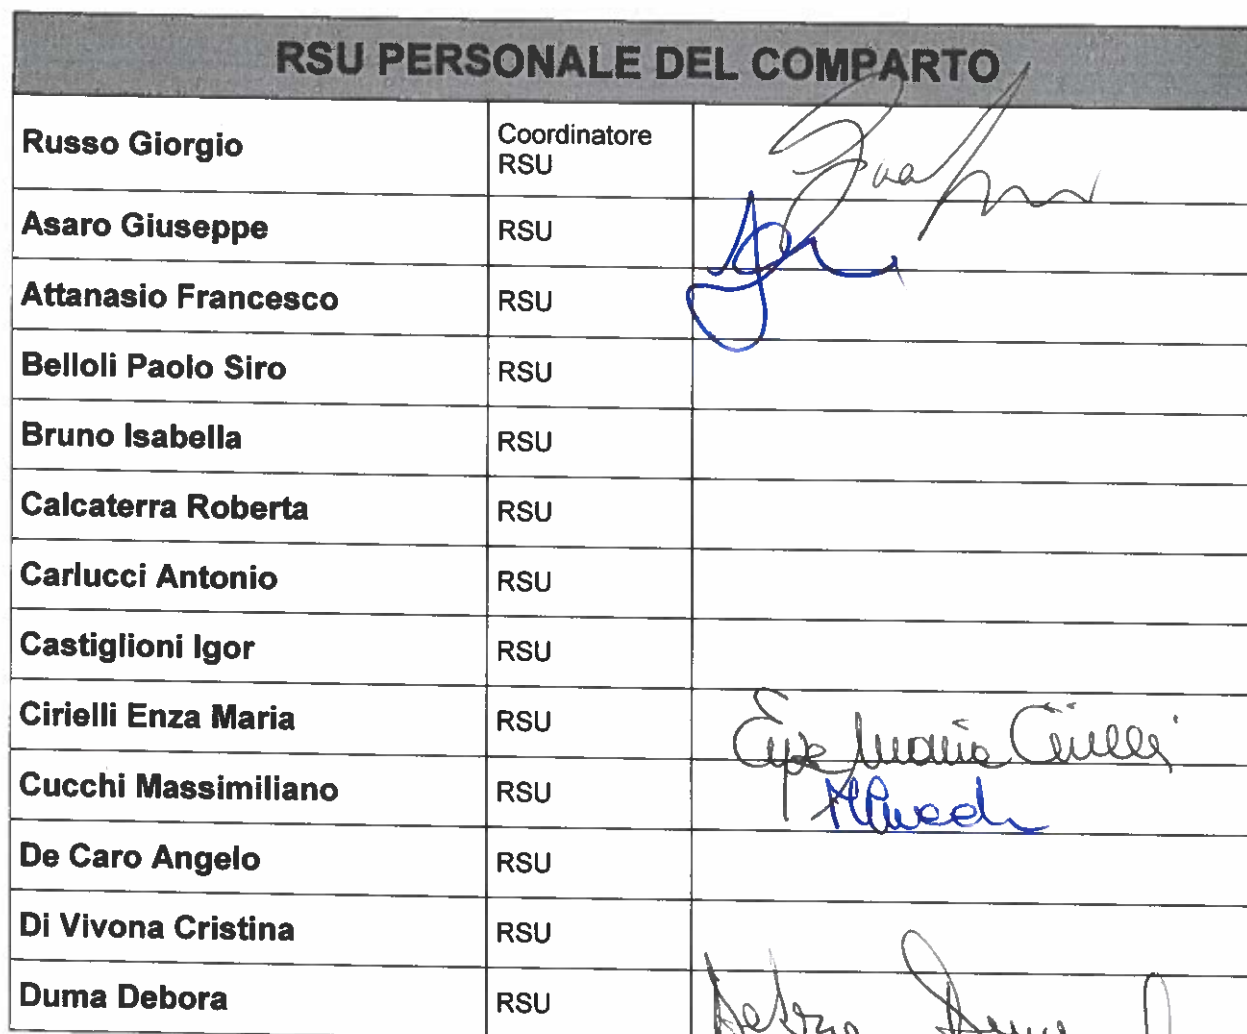 RSU PERSONALE DEL COMPARTO
Russo Giorgio Coordinatore RSU
Asaro Giuseppe RSU
Attanasio Francesco RSU
Belloli Paolo Siro RSU
Bruno Isabella RSU
Calcaterra Roberta RSU
Carlucci Antonio RSU
Castiglioni Igor RSU
Cirielli Enza Maria RSU Enza Maria Cirielli
Cucchi Massimiliano RSU
De Caro Angelo RSU
Di Vivona Cristina RSU
Duma Debora RSU Debora Duma